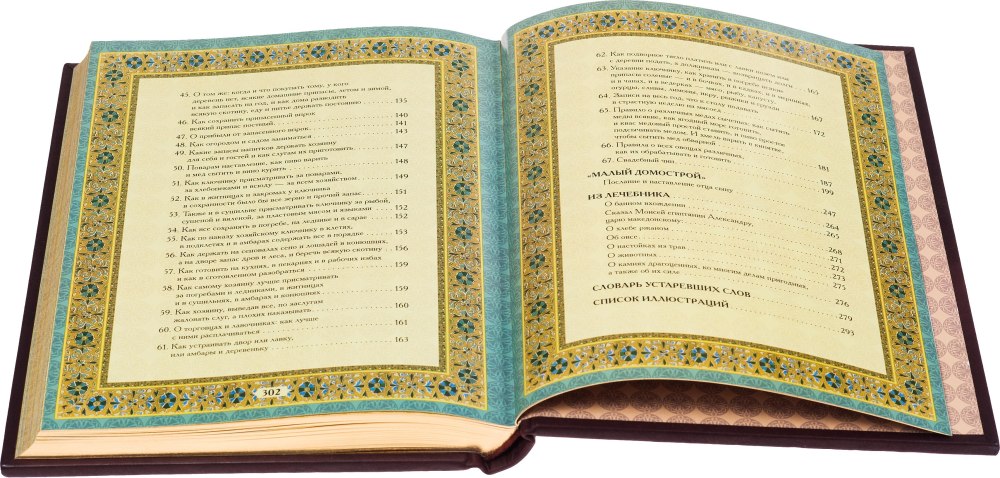 45. О том же: когда и что покупать тому, у кого
деревень нет, всякие домашние припасы, летом и зимой,
и как запасать на год, и как дома разводить
всякую скотину, еду и питье держать постоянно 135
46. Как сохранить припасенный впрок
всякий припас постный 140
47. О прибыли от запасенного впрок 141
48. Как огородом и садом заниматься 143
49. Какие запасы напитков держать хозяину
для себя и гостей и как слугам их приготовить 147
50. Поварам наставление, как пиво варить
и мед сытить и вино курить 148
51. Как ключнику присматривать за поварами,
за хлебониками и всюду — за всем хозяйством 149
52. Как в житницах и закромах у ключника
в сохранности было бы все зерно и прочий запас 151
53. Также и в сушильне присматривать ключнику за рыбой,
сушеной и вяленой, за пластовым мясом и языками 152
54. Как все сохранять в погребе, на леднике и в сарае 152
55. Как по наказу хозяйскому ключнику в клетях,
в подклетях и в амбарах содержать все в порядке 153
56. Как держать на сеновалах сено и лошадей в конюшнях,
а на дворе запас дров и леса, и беречь всякую скотину 156
57. Как готовить на кухнях, в пекарнях и в рабочих избах
и как в сготовленном разобраться 159
58. Как самому хозяину лучше присматривать
за погребами и ледниками, в житницах
и в сушильнях, в амбарах и конюшнях 159
59. Как хозяину, выведав все, по заслугам
жаловать слуг, а плохих наказывать 160
60. О торговцах и лавочниках: как лучше
с ними расплачиваться 161
61. Как устраивать двор или лавку,
или амбары и деревеньку 163
302
62. Как подворное тягло платить или с лавки позем или
с деревни подать, а должникам — возвращать долги 165
63. Указание ключнику, как хранить в погребе всякие
припасы соленые — и в бочках, и в кадках, и в мерниках,
и в чанах, и в ведерках — мясо, рыбу, капусту,
огурцы, сливы, лимоны, икру, рыжики и грузди 167
64. Записи на весь год, что к столу подавать
в страстную неделю на масле 172
65. Правило о различных медах сыченых: как сытить
меды всякие, как ягодный морс готовить,
и квас медовый простой ставить, и пиво
подсычивать медом. И имело варить
чтобы сытить мед обварной
66. Правила о всех овощах различных,
как их обрабатывать и готовить 181
67. Свадебный чин
„МАЛЫЙ ДОМОСТРОЙ” 187
Послание и наставление отца сыну 199
ИЗ ЛЕЧЕБНИКА
О банном вхождении 247
Сказал Моисей египтянин Александру,
царю македонскому 264
О хлебе ржаном 265
Об овсе
О настойках из трав 268
О животных 271
О камнях драгоценных, ко многим делам пригодных, 272
а также об их силе 273
275
СЛОВАРЬ УСТАРЕВШИХ СЛОВ 276
СПИСОК ИЛЛЮСТРАЦИЙ 279
293